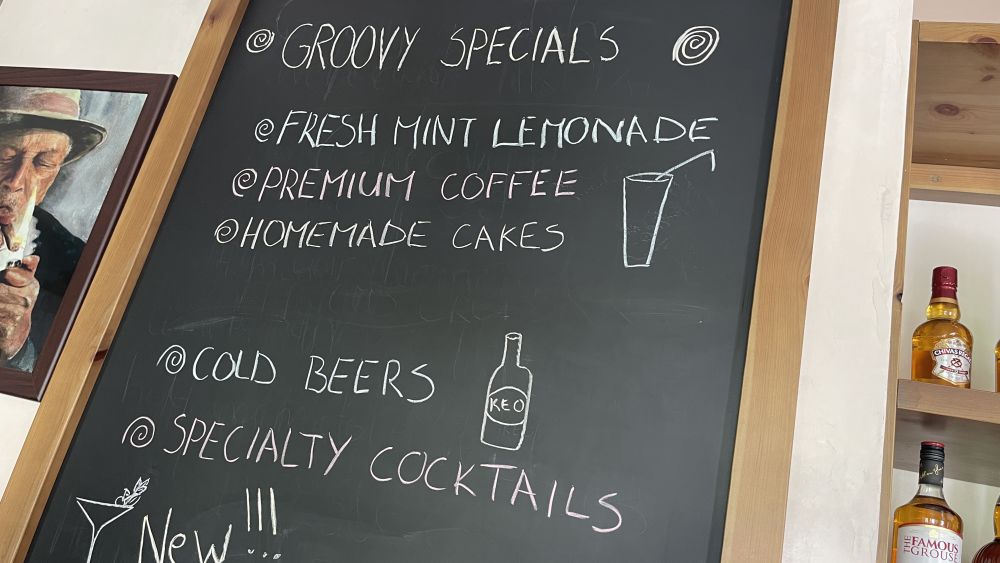 GROOVY SPECIALS
FRESH MINT LEMONADE
PREMIUM COFFEE
HOMEMADE CAKES
COLD BEERS
KEO
SPECIALTY COCKTAILS
New!!!
CHIVAS REGAL
THE FAMOUS
GROUSE